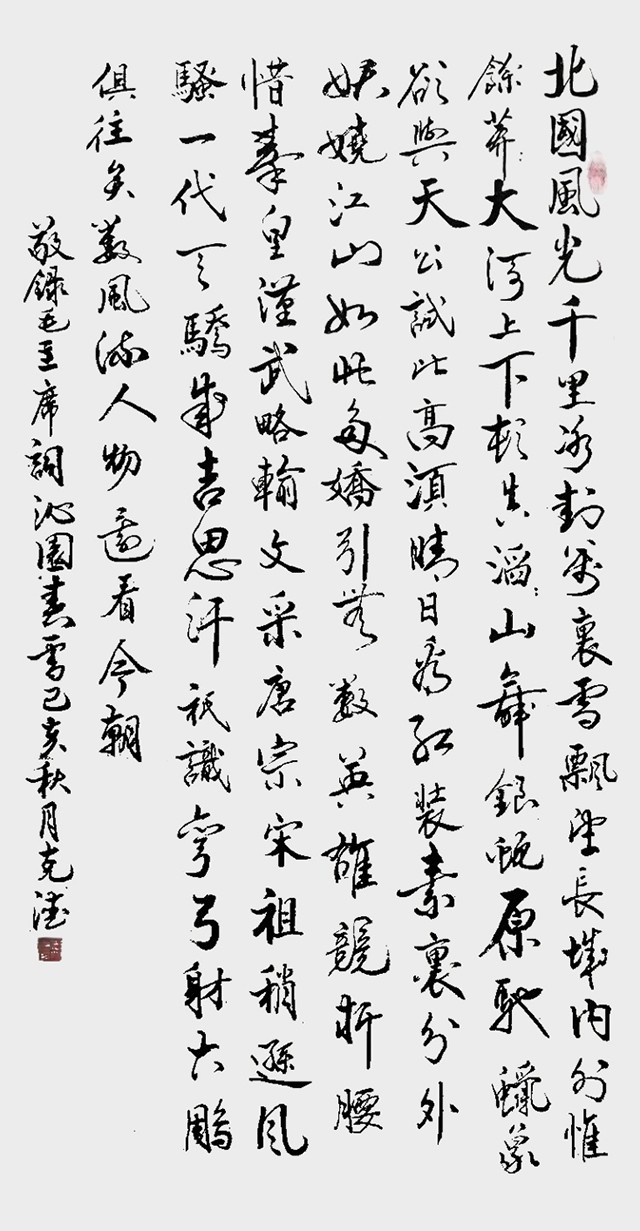 北國風光千里冰封萬裏雪飄望長城內外惟
餘莽:大河上下頓失滔:山舞銀蛇原馳蠟象
欲與天公試比高須晴日看紅裝素裹分外
妖嬈江山如此多嬌引無數英雄競折腰
惜秦皇漢武略輸文采唐宗宋祖稍遜風
騷一代天驕成吉思汗祇識彎弓射大鵰
俱往矣數風流人物還看今朝
敬錄毛主席詞沁園春雪己亥秋月克